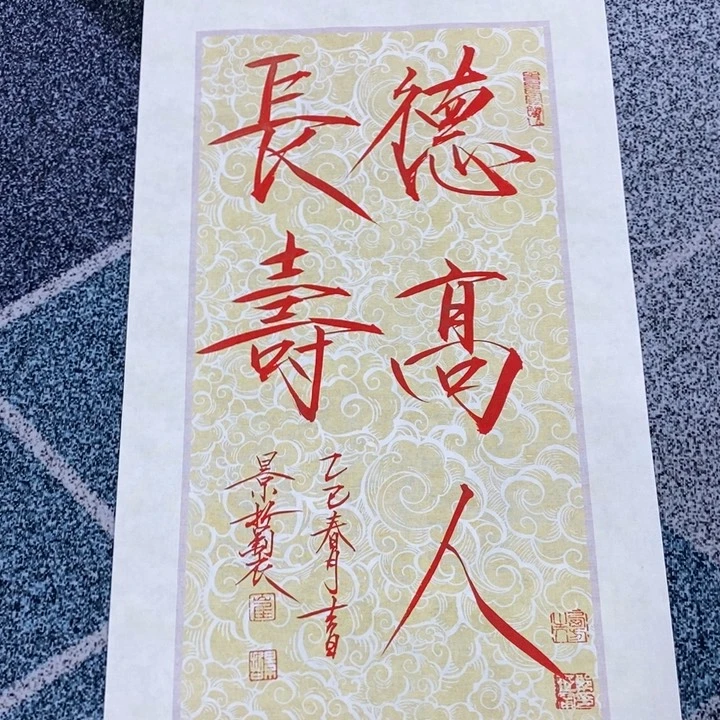 德髙人
長壽
乙巳春月吉日
景哲製